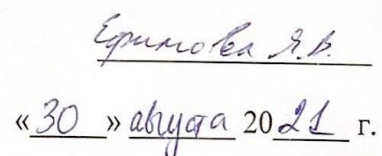 Ефимова Я.В.
«30» августа 2021 г.